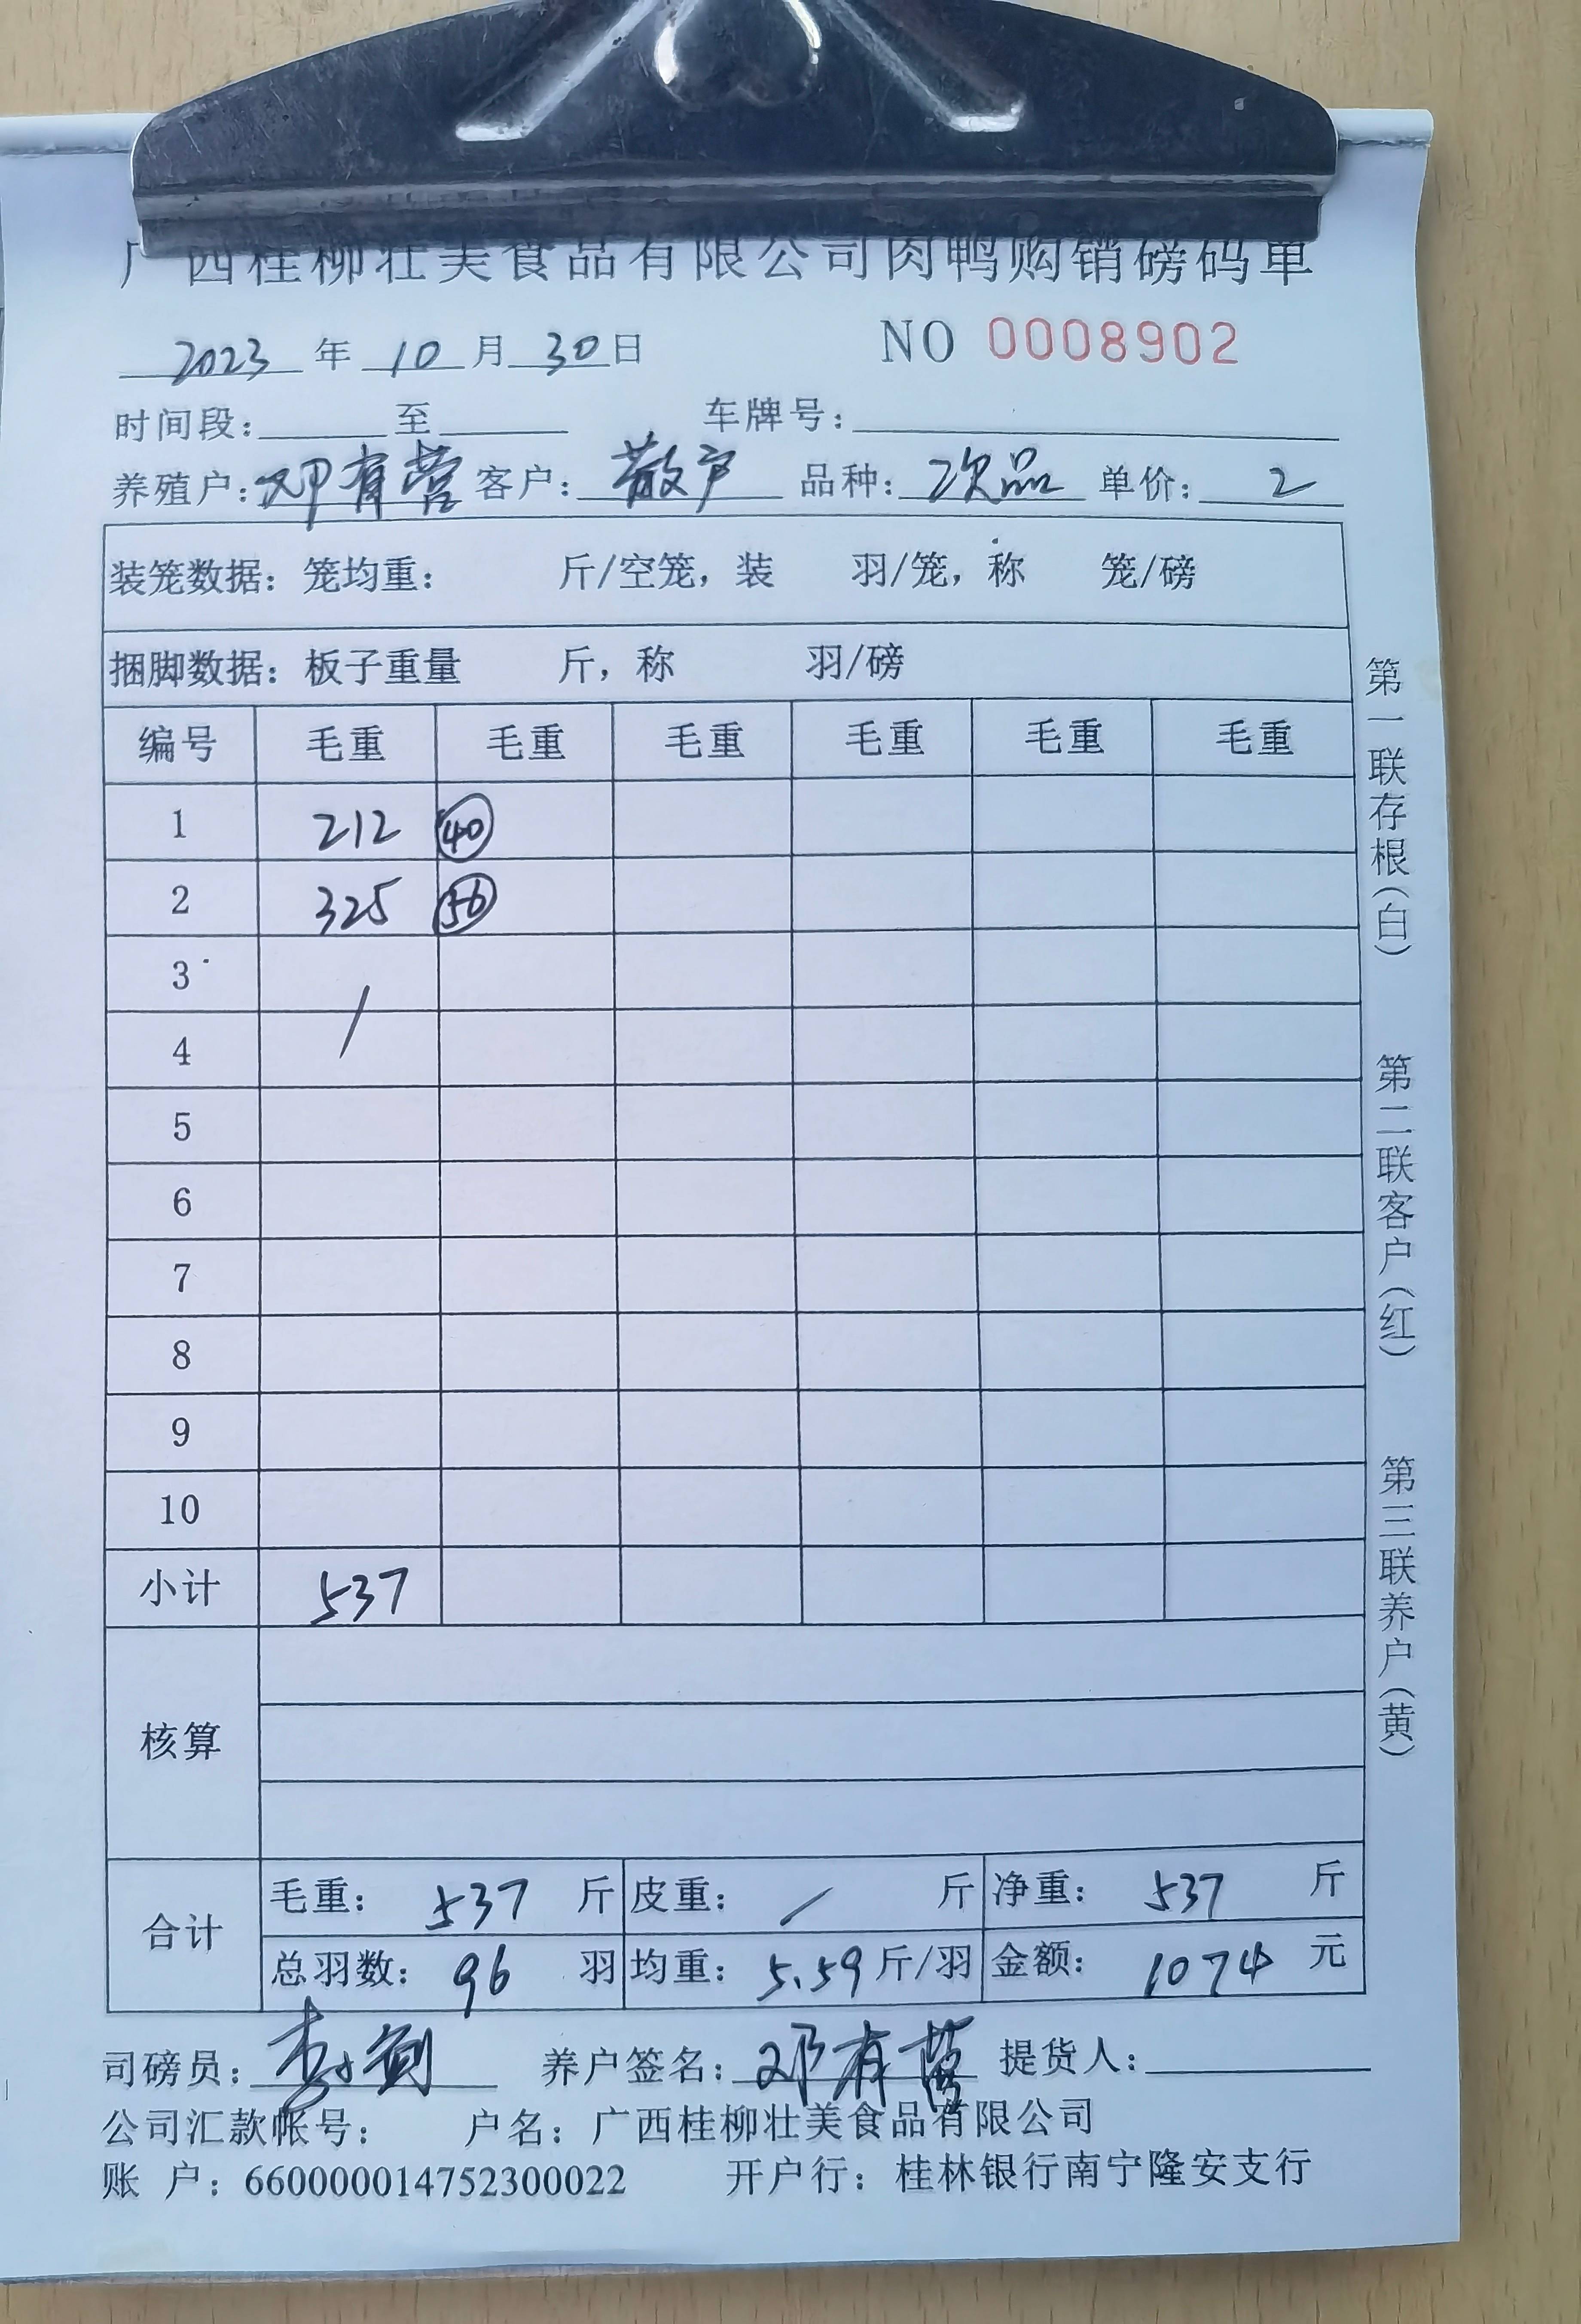 广西桂柳壮美食品有限公司肉鸭购销磅码单
2023 年 10 月 30 日 NO 0008902
时间段: 至 车牌号:
养殖户: 邓有营 客户: 散户 品种: 次品 单价: 2
装笼数据: 笼均重: 斤/空笼, 装 羽/笼, 称 笼/磅
捆脚数据: 板子重量 斤, 称 羽/磅
编号 毛重 毛重 毛重 毛重 毛重 毛重
1 212 40
2 325 56
3
4
5
6
7
8
9
10
小计 537
核算
合计
毛重: 537 斤 皮重: / 斤 净重: 537 斤
总羽数: 96 羽 均重: 5.59 斤/羽 金额: 1074 元
司磅员: 养户签名: 邓有营 提货人:
公司汇款帐号: 户名: 广西桂柳壮美食品有限公司
账 户: 660000014752300022 开户行: 桂林银行南宁隆安支行
第一联存根(白)
第二联客户(红)
第三联养户(黄)